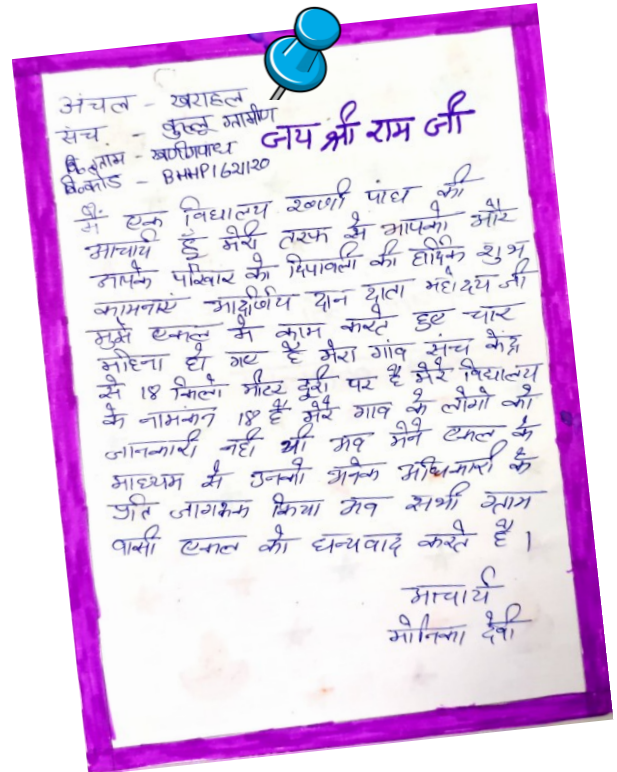 अंचल - खराहल
संच - कुल्लू ग्रामीण
जय श्री राम जी
वि.ग्राम - खणीपांध
वि.कोड - BHHP162120
मैं एक विद्यालय खणी पांध की
आचार्य हूँ मेरी तरफ से आपको और
आपके परिवार को दिपावली की हार्दिक शुभ
कामनाएं आदर्णिय दान दाता महोदय जी
मुझे एकल में काम करते हुए चार
महिना हो गए है मेरा गांव संच केंद्र
से 18 किलो मीटर दूरी पर है मेरे विद्यालय
के नामंकन 18 है मेरे गाव के लोगो को
जानकारी नही थी अब मेने एकल के
माध्यम से उनको अनेक अधिकारो के
प्रति जागरूक किया अब सभी ग्राम
वासी एकल को धन्यवाद करते है ।
आचार्य
मोनिका देवी